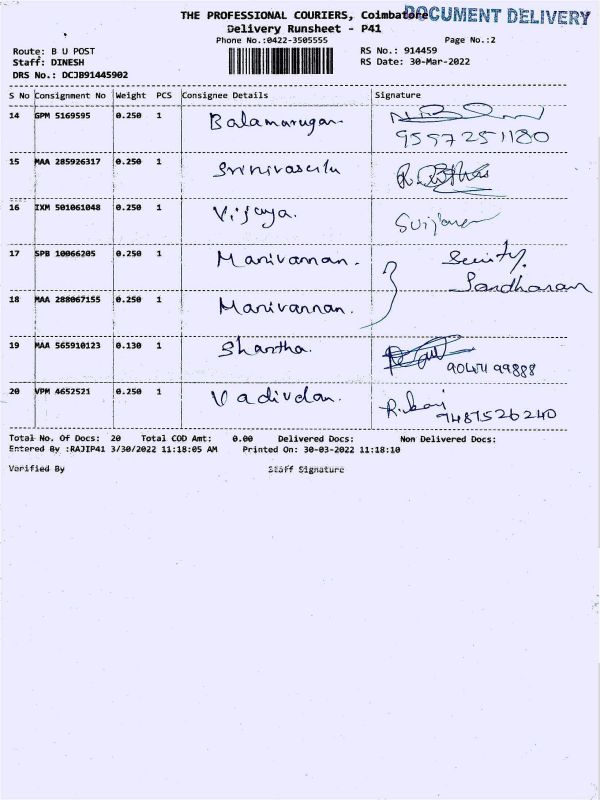 THE PROFESSIONAL COURIERS, Coimbatore
DOCUMENT DELIVERY
Delivery Runsheet - P41
Phone No.:0422-3505555
Page No.:2
Route: B U POST
RS No.: 914459
Staff: DINESH
RS Date: 30-Mar-2022
DRS No.: DCJB91445902
S No Consignment No Weight PCS Consignee Details Signature
14 GPM 5169595 0.250 1 Balamarugan.
9597251180
15 MAA 285926317 0.250 1
16 IXM 501061048 0.250 1 Vijaya.
17 SPB 10066205 0.250 1 Manivannan.
18 MAA 288067155 0.250 1 Manivannan.
19 MAA 565910123 0.130 1 Shantha.
99888
20 VPM 4652521 0.250 1
9487526240
Total No. Of Docs: 20 Total COD Amt: 0.00 Delivered Docs: Non Delivered Docs:
Entered By :RAJIP41 3/30/2022 11:18:05 AM Printed On: 30-03-2022 11:18:10
Verified By Staff Signature